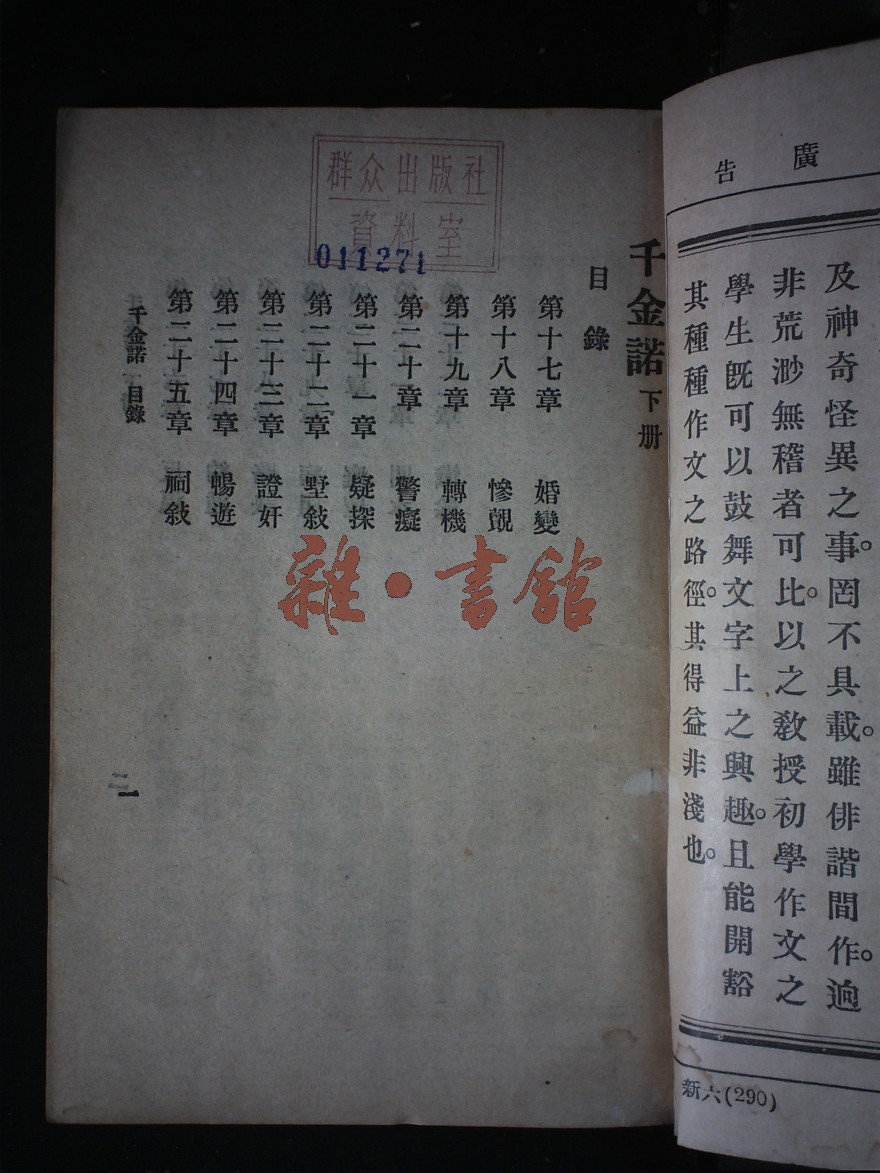 廣告
及神奇怪異之事。罔不具載。雖俳諧間作。逈
非荒渺無稽者可比。以之教授初學作文之
學生旣可以鼓舞文字上之興趣。且能開豁
其種種作文之路徑。其得益非淺也。
新六(290)
群众出版社
資料室
011271
千金諾下册
目錄
第十七章 婚變
第十八章 慘覩
第十九章 轉機
第二十章 警癡
第二十一章 疑探
第二十二章 墅敍
第二十三章 證奸
第二十四章 暢遊
第二十五章 祠敍
千金諾 目錄
一
雜·書館